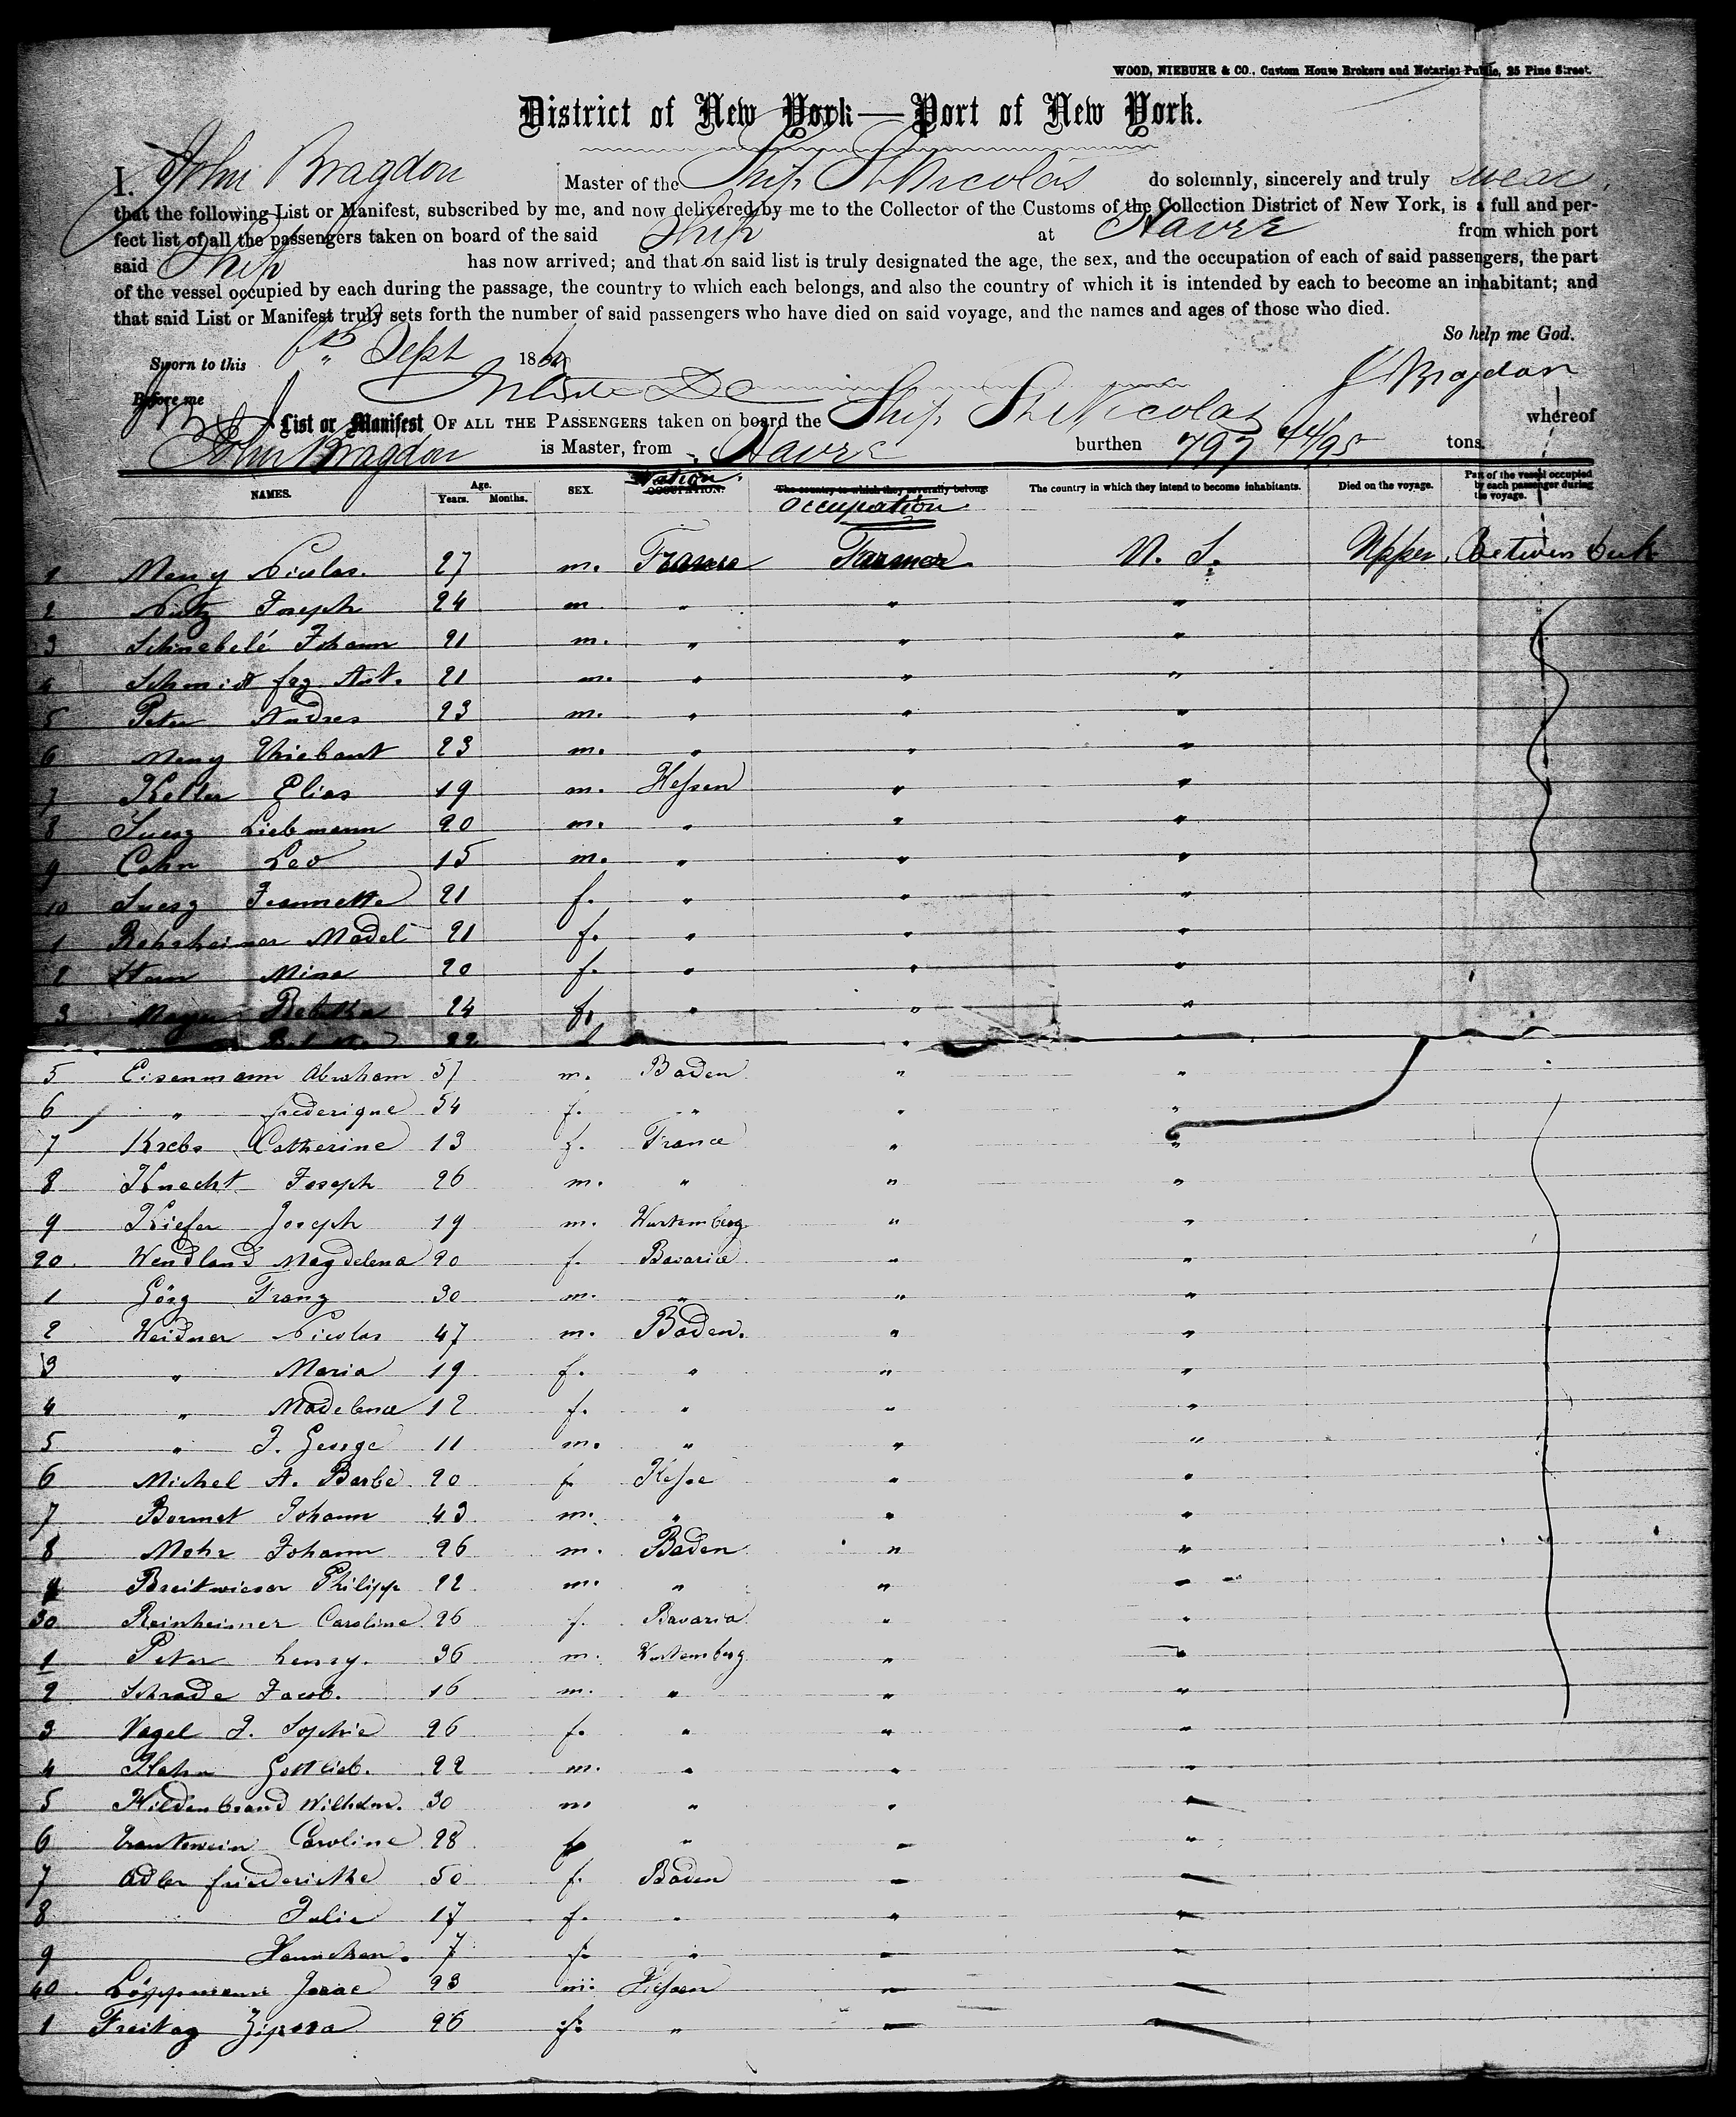 WOOD, NIEBUHR & CO., Custom House Brokers and Notaries Public, 25 Pine Street.
District of New York—Port of New York.
I, John Bragdon Master of the Ship St Nicolas do solemnly, sincerely and truly swear,
that the following List or Manifest, subscribed by me, and now delivered by me to the Collector of the Customs of the Collection District of New York, is a full and per-
fect list of all the passengers taken on board of the said Ship at Havre from which port
said Ship has now arrived; and that on said list is truly designated the age, the sex, and the occupation of each of said passengers, the part
of the vessel occupied by each during the passage, the country to which each belongs, and also the country of which it is intended by each to become an inhabitant; and
that said List or Manifest truly sets forth the number of said passengers who have died on said voyage, and the names and ages of those who died.
So help me God.
Sworn to this 6th Sept 186
J Bragdon
Before me
List or Manifest OF ALL THE PASSENGERS taken on board the Ship St Nicolas whereof
John Bragdon is Master, from Havre burthen 797 44/95 tons.
NAMES. Age. Years. Months. SEX. Nation. OCCUPATION. The country to which they severally belong. Occupation The country in which they intend to become inhabitants. Died on the voyage. Part of the vessel occupied by each passenger during the voyage.
1 Meny Nicolas. 27 m. France Farmer. U. S. Upper Between Deck
2 Nutz Joseph 24 m. " " "
3 Schnebelé Johann 21 m. " " "
4 Schmidt frz. Ant. 21 m. " " "
5 Peter Andres 23 m. " " "
6 Meny Thiebaut 23 m. " " "
7 Keller Elias 19 m. Hessen " "
8 Suesz Liebmann 20 m. " " "
9 Cahn Leo 15 m. " " "
10 Suesz Jeannette 21 f. " " "
1 Rehrheimer Madel 21 f. " " "
2 Stern Mina 20 f. " " "
3 Mayer Babetta 24 f. " " "
22
5 Eisenmann Abraham 57 m. Baden " "
6 " frederique 54 f. " " "
7 Krebs Catherine 13 f. France " "
8 Knecht Joseph 26 m. " " "
9 Kiefer Joseph 19 m. Wurtemberg " "
20. Wendland Magdelena 20 f. Bavaria " "
1 Görg Franz 30 m. " " "
2 Weidner Nicolas 47 m. Baden. " "
3 " Maria 19 f. " " "
4 " Madelena 12 f. " " "
5 " J. George 11 m. " " "
6 Michel A. Barbe 20 f Hesse " "
7 Bermet Johann 43 m. " " "
8 Mohr Johann 26 m. Baden " "
9 Breitwieser Philipp 22 m. " " "
30 Reinheimer Caroline 26 f. Bavaria " "
1 Peter henry. 36 m. Wurtemberg " "
2 Schrade Jacob. 16 m. " " "
3 Vogel J. Sophie 26 f. " " "
4 Hahn Gottlieb. 22 m. " " "
5 Hildenbrand Wilhelm. 30 m " " "
6 Trautwein Caroline 28 f " " "
7 Adler friedericke 50 f. Baden " "
8 Julie 17 f. " " "
9 Hannchen. 7 f. " " "
40. Löppmann Isaac 23 m. Hessen " "
1 Freitag Zipora 26 f. " " "